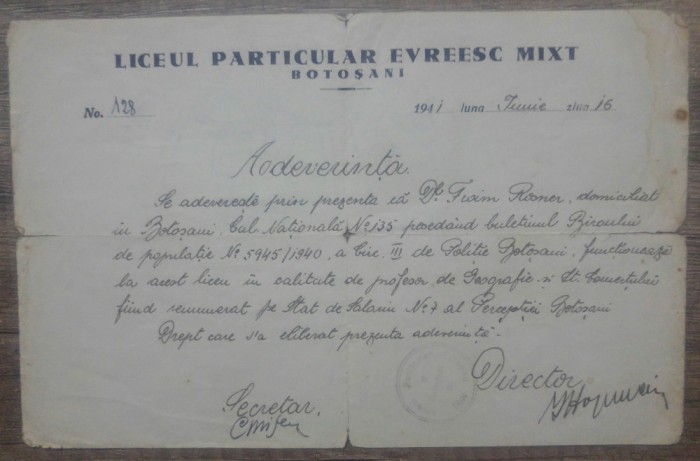 LICEUL PARTICULAR EVREESC MIXT
BOTOȘANI
No. 128 1941 luna Iunie ziua 16
Adeverință
Se adeverește prin prezenta că Dl. Froim Rosner, domiciliat
în Botoșani, Cal. Națională No 135 posedând buletinul Biroului
de populație No 5945/1940, a circ. III de Poliție Botoșani, funcționează
la acest liceu în calitate de profesor de Geografie și St. Comerțului
fiind remunerat pe Stat de Salarii No 7 al Percepției Botoșani
Drept care s'a eliberat prezenta adeverință.-
Director,
Secretar,